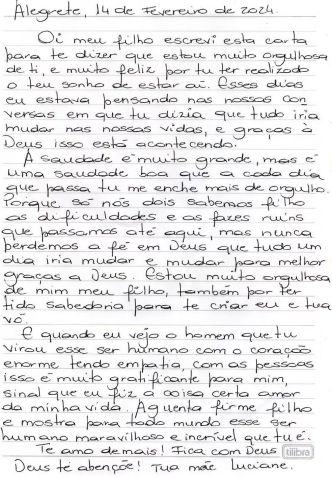 Alegrete, 14 de Fevereiro de 2024.
Oi meu filho escrevi esta carta
para te dizer que estou muito orgulhosa
de ti, e muito feliz por tu ter realizado
o teu sonho de estar aí. Esses dias
eu estava pensando nas nossas con
versas em que tu dizia que tudo iria
mudar nas nossas vidas, e graças à
Deus isso está acontecendo.
A saudade é muito grande, mas é
uma saudade boa que a cada dia
que passa tu me enche mais de orgulho.
Porque só nós dois sabemos filho
as dificuldades e as fazes ruins
que passamos até aqui, mas nunca
perdemos a fé em Deus que tudo um
dia iria mudar e mudar para melhor
graças a Deus. Estou muito orgulhosa
de mim meu filho, também por ter
tido sabedoria para te criar eu e tua
vó.
E quando eu vejo o homem que tu
virou esse ser humano com o coração
enorme tendo empatia, com as pessoas
isso é muito gratificante para mim,
sinal que eu fiz a coisa certa amor
da minha vida. Aguenta firme filho
e mostra para todo mundo esse ser
humano maravilhoso e incrível que tu é.
Te amo demais! Fica com Deus
Deus te abençõe! Tua mãe Luciane.
tilibra